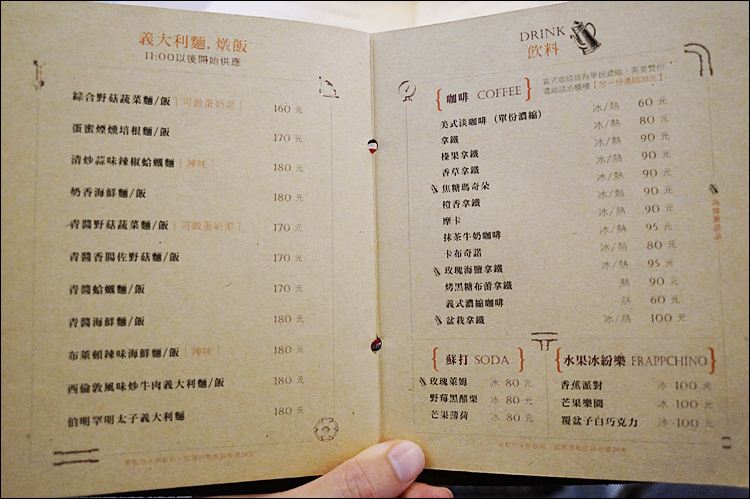 義大利麵.燉飯
11:00以後開始供應
綜合野菇蔬菜麵/飯 [可做蛋奶素] 160 元
蛋蜜煙燻培根麵/飯 170 元
清炒蒜味辣椒蛤蠣麵 [辣味] 180 元
奶香海鮮麵/飯 180 元
青醬野菇蔬菜麵/飯 [可做蛋奶素] 170 元
青醬香腸佐野菇麵/飯 170 元
青醬蛤蠣麵/飯 170 元
青醬海鮮麵/飯 180 元
布萊頓辣味海鮮麵/飯 [辣味] 180 元
西倫敦風味炒牛肉義大利麵/飯 180 元
伯明罕明太子義大利麵 180 元
DRINK
飲料
咖啡 COFFEE
美式淡咖啡 (單份濃縮) 冰/熱 60 元
拿鐵 冰/熱 80 元
榛果拿鐵 冰/熱 90 元
香草拿鐵 冰/熱 90 元
焦糖瑪奇朵 冰/熱 90 元
橙香拿鐵 冰/熱 90 元
摩卡 冰/熱 90 元
抹茶牛奶咖啡 冰/熱 95 元
卡布奇諾 冰/熱 80 元
玫瑰海鹽拿鐵 冰/熱 95 元
烤黑糖布蕾拿鐵 熱 90 元
義式濃縮咖啡 熱 60 元
盆栽拿鐵 冰/熱 100 元
蘇打 SODA
玫瑰萊姆 冰 80 元
野莓黑醋栗 冰 80 元
芒果薄荷 冰 80 元
水果冰紛樂 FRAPPCHINO
香蕉派對 冰 100 元
芒果樂園 冰 100 元
覆盆子白巧克力 冰 100 元